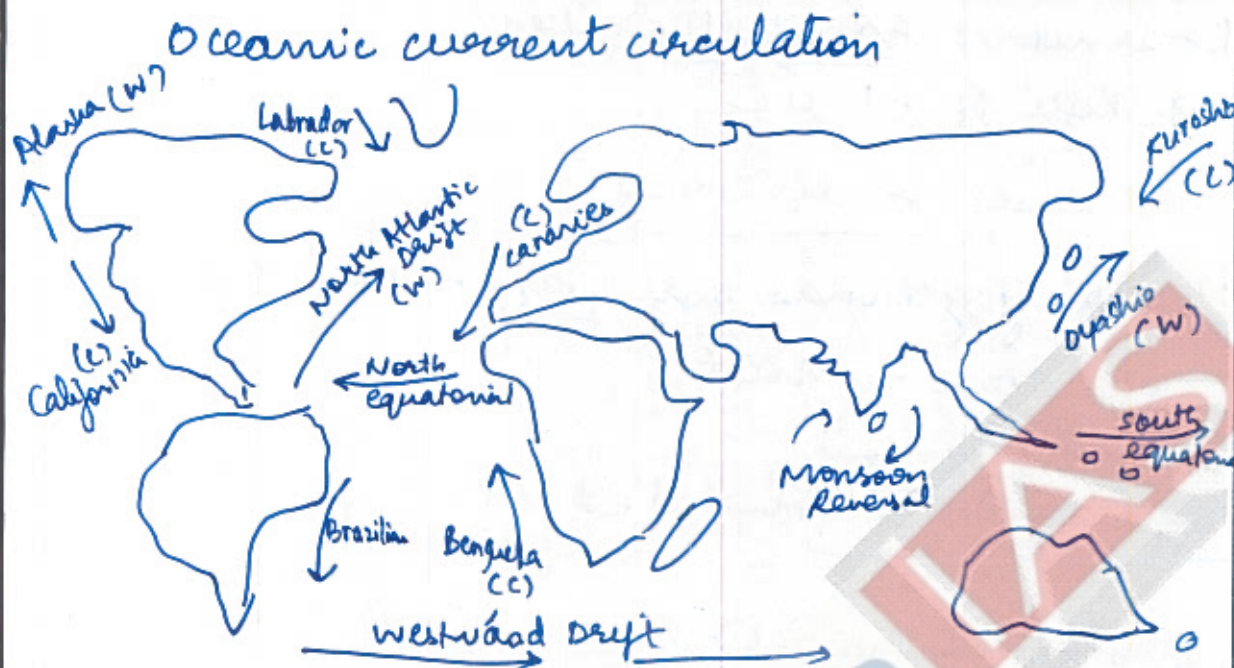 Oceanic current circulation
Alaska (W)
Labrador
(C)
Kuroshio
(C)
North Atlantic
Drift
(W)
(C)
canaries
(C)
California
North
equatorial
Oyashio
(W)
South
equatorial
Monsoon
Reversal
Brazilian
Benguela
(C)
Westward Drift
IAS